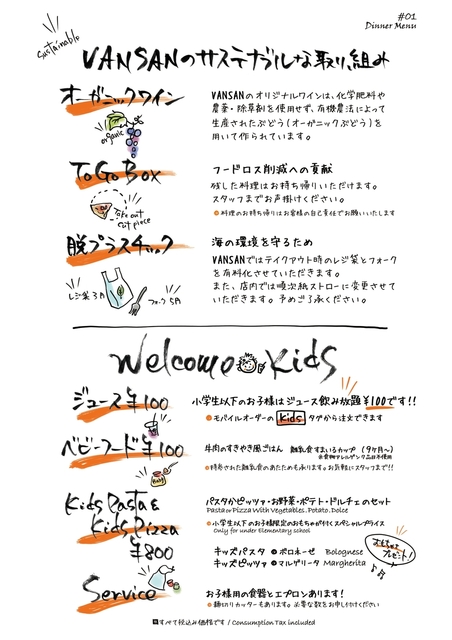 #01
Dinner Menu
sustainable
VANSANのサステナブルな取り組み
オーガニックワイン
organic
VANSANのオリジナルワインは、化学肥料や
農薬・除草剤を使用せず、有機農法によって
生産されたぶどう(オーガニックぶどう)を
用いて作られています。
To Go Box
Take out
フードロス削減への貢献
残した料理はお持ち帰りいただけます。
スタッフまでお声掛けください。
料理のお持ち帰りはお客様の自己責任でお願いいたします
脱プラスチック
レジ袋 3円
フォーク 5円
海の環境を守るため
VANSANではテイクアウト時のレジ袋とフォーク
を有料化させていただきます。
また、店内では順次紙ストローに変更させて
いただきます。予めご了承ください。
Welcome Kids
ジュース ¥100
小学生以下のお子様はジュース飲み放題¥100です!!
モバイルオーダーの Kids タグから注文できます
ベビーフード ¥100
牛肉のすきやき風ごはん 離乳食 すまいるカップ (9ヶ月〜)
持参された離乳食のあたためも承ります。お気軽にスタッフまで!!
Kids Pasta &
Kids Pizza
¥800
パスタかピッツァ・お野菜・ポテト・ドルチェのセット
Pasta or Pizza With Vegetables, Potato, Dolce
小学生以下のお子様限定のおもちゃが付くスペシャルプライス
Only for under Elementary school
キッズパスタ ボロネーゼ Bolognese
キッズピッツァ マルゲリータ Margherita
おもちゃ
プレゼント!
Service
お子様用の食器とエプロンあります!
麺切りカッターもあります。必要な数をお申し付けください
すべて税込み価格です / Consumption Tax included